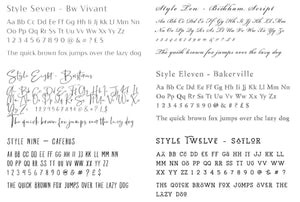 Style Seven - Bw Vivant
Aa Bb Cc Dd Ee Ff Gg Hh Ii Jj Kk Ll Mm
Nn Oo Pp Qq Rr Ss Tt Uu Vv Ww Xx Yy Zz
1 2 3 4 5 6 7 8 9 0 & @ ! ? £ $
The quick brown fox jumps over the lazy dog
Style Eight - 
The quick brown fox jumps over the lazy dog
STYLE NINE -
AA BB CC DD EE FF GG HH II JJ KK LL MM
NN OO PP QQ RR SS TT UU VV WW XX YY ZZ
1 2 3 4 5 6 7 8 9 0 & @ ! ? £ $
THE QUICK BROWN FOX JUMPS OVER THE LAZY DOG
Style Ten - Bickham Script
The quick brown fox jumps over the lazy dog
Style Eleven - Bakerville
Aa Bb Cc Dd Ee Ff Gg Hh Ii Jj Kk Ll Mm
Nn Oo Pp Qq Rr Ss Tt Uu Vv Ww Xx Yy Zz
1 2 3 4 5 6 7 8 9 0 & @ ! ? £ $
The quick brown fox jumps over the lazy dog
STYLE TWELVE -
AA BB CC DD EE FF GG HH II JJ KK LL MM
NN OO PP QQ RR SS TT UU VV WW XX YY ZZ
1 2 3 4 5 6 7 8 9 0 & @ ! ? £ $
THE QUICK BROWN FOX JUMPS OVER THE LAZY DOG